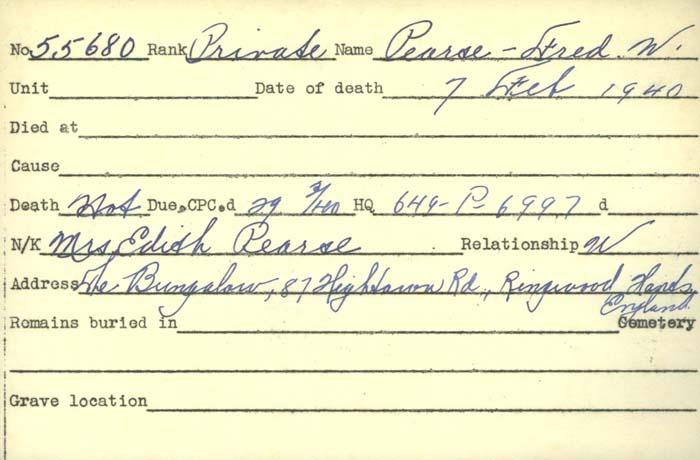 No. 55680 Rank Private Name Pearse - Fred. W.
Unit Date of death 7 Feb 1940
Died at
Cause
Death Not Due, CPC.d 29 3/40 HQ 649-P-6997 d
N/K Mrs. Edith Pearse Relationship W
Address The Bungalow, 87 Hightown Rd., Ringwood Hants,
England.
Remains buried in Cemetery
Grave location